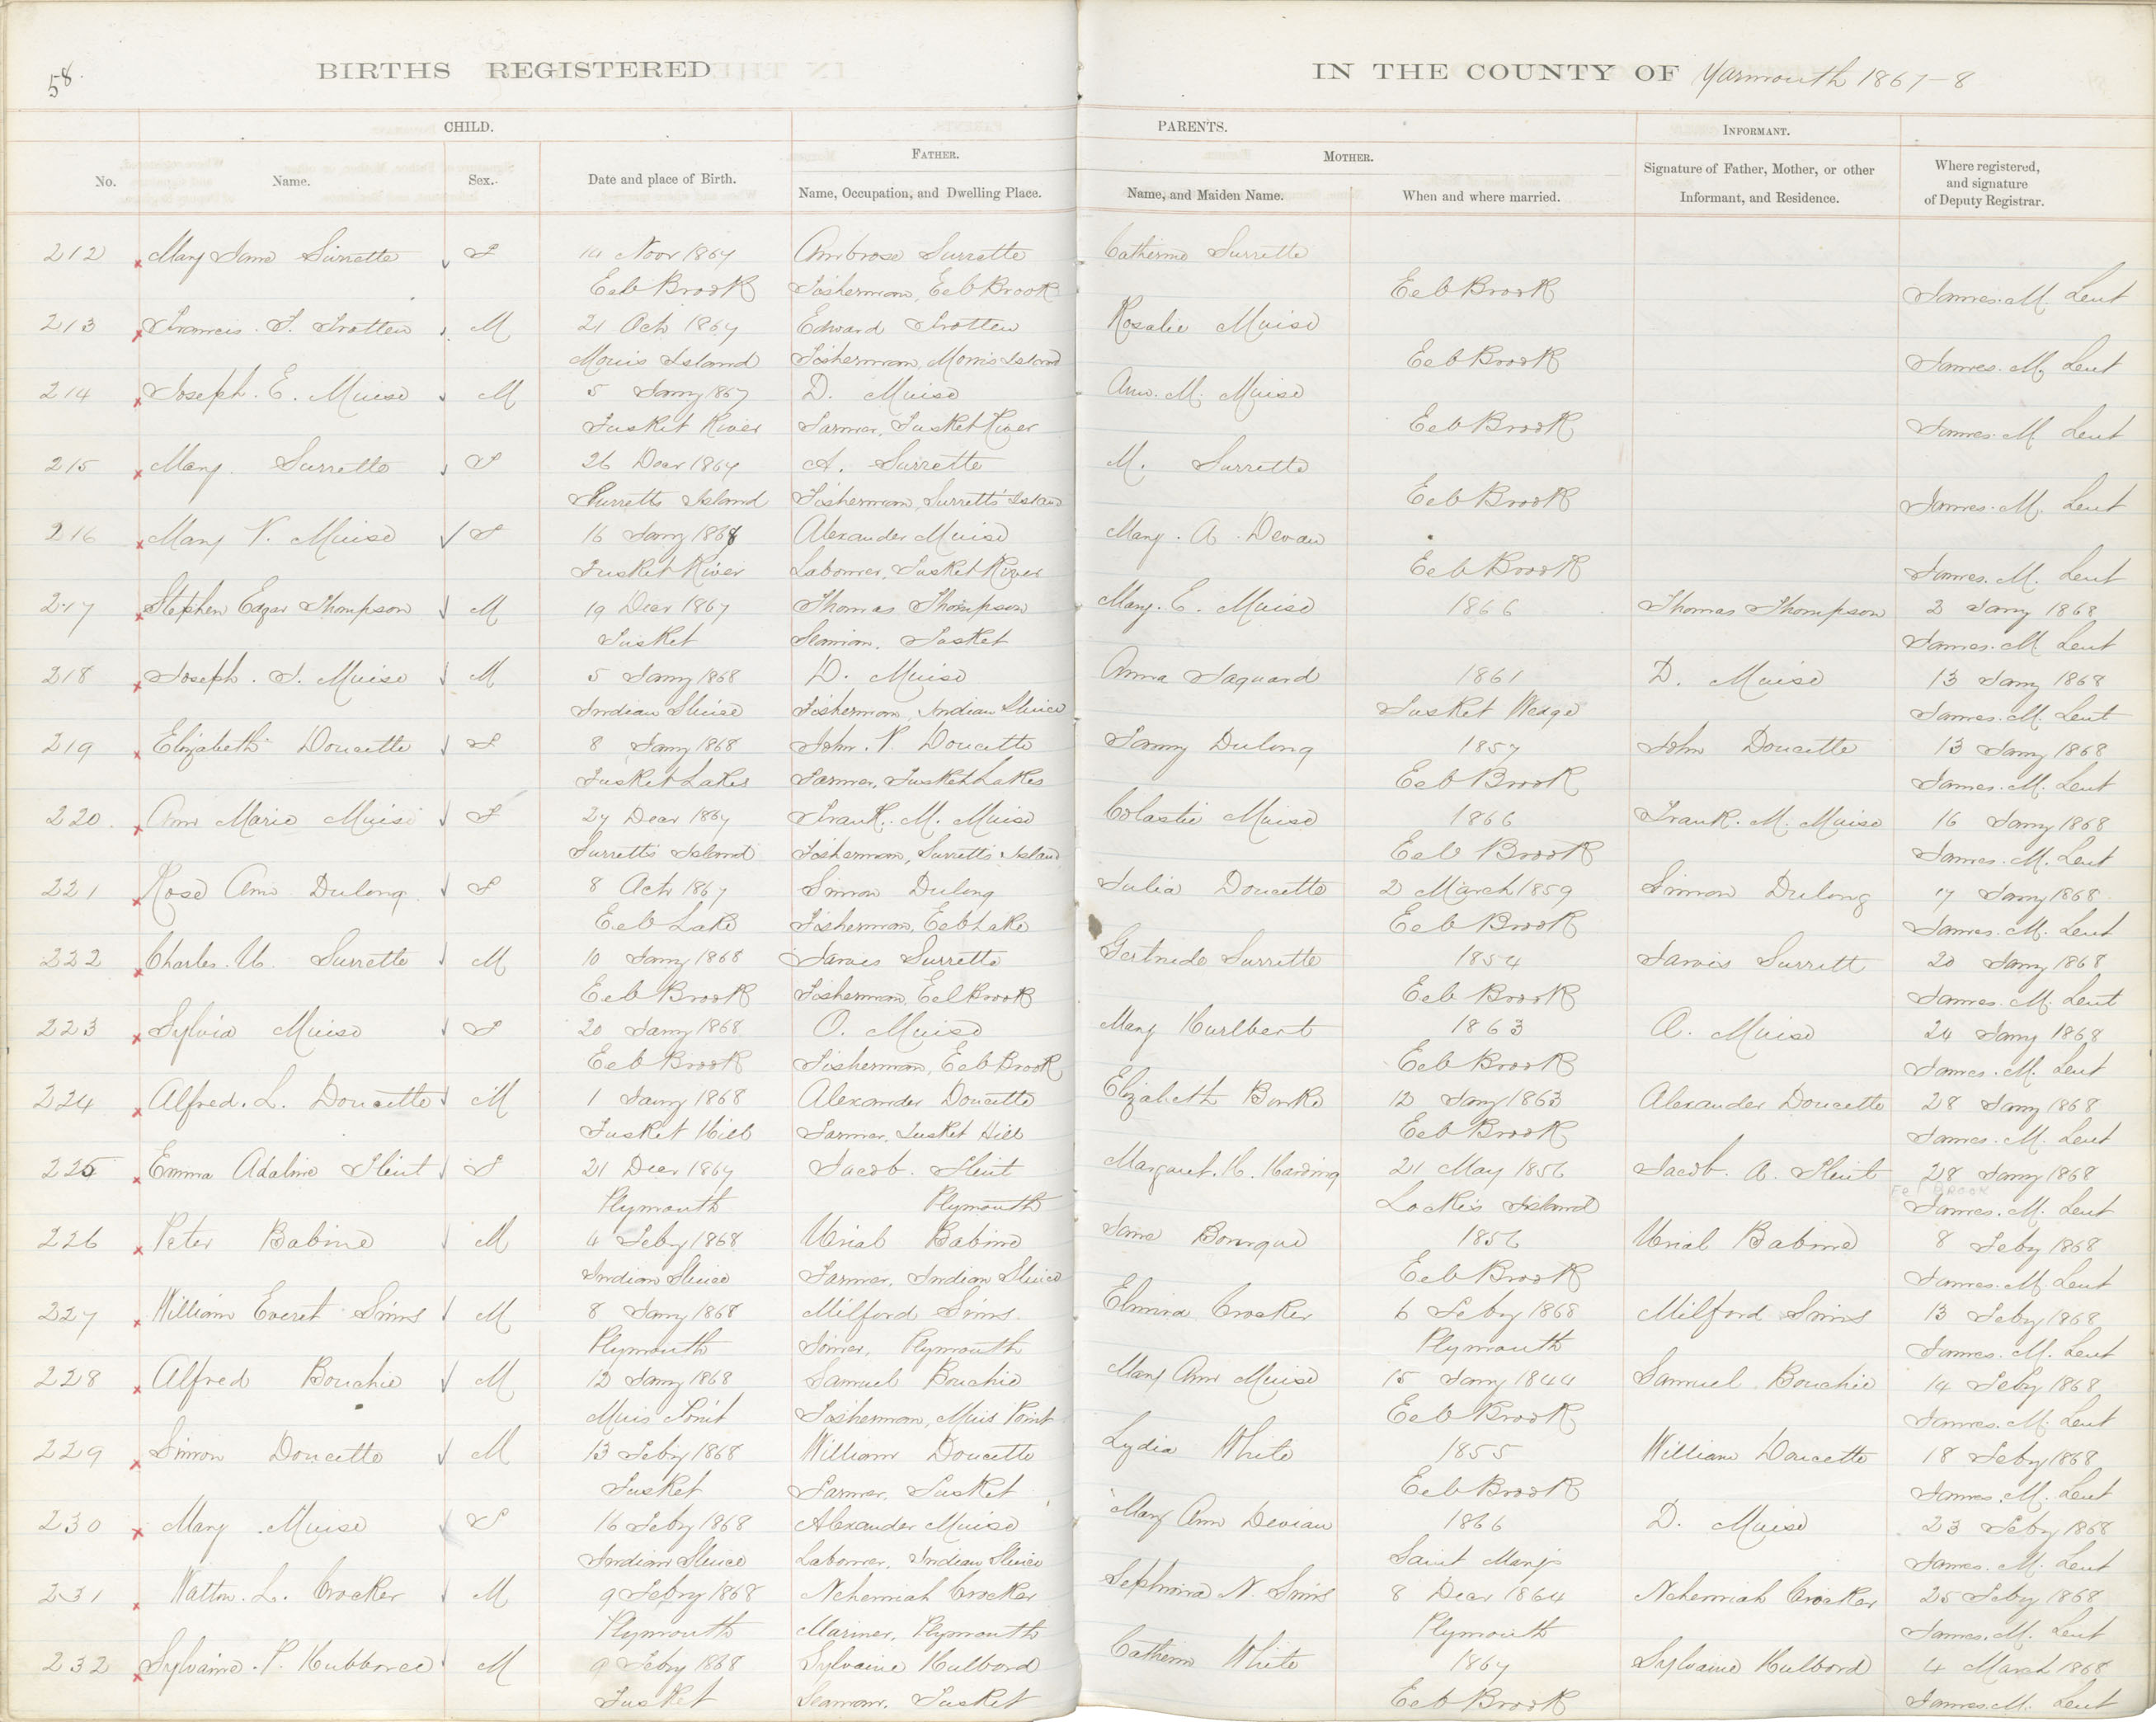 58.
BIRTHS REGISTERED
IN THE COUNTY OF Yarmouth 1867-8
CHILD.
PARENTS.
INFORMANT.
FATHER.
MOTHER.
No. Name. Sex. Date and place of Birth. Name, Occupation, and Dwelling Place. Name, and Maiden Name. When and where married. Signature of Father, Mother, or other Informant, and Residence. Where registered, and signature of Deputy Registrar.
212 Mary Jane Surrette F Novr 1867 Ambrose Surrette Catherine Surrette
Eel Brook Fisherman, Eel Brook Eel Brook James. M. Lent
213 Francis. F. Frotten M 21 Oct 1867 Edward Frotten Rosalie Muise
Morris Island Fisherman, Morris Island Eel Brook James. M. Lent
214 Joseph. E. Muise M 5 Jany 1867 D. Muise Ann. M. Muise
Tusket River Farmer, Tusket River Eel Brook James. M. Lent
215 Mary. Surrette F 26 Decr 1867 A. Surrette M. Surrette
Surretts Island Fisherman, Surretts Island Eel Brook James. M. Lent
216 Mary V. Muise F 16 Jany 1868 Alexander Muise Mary. A. Devau
Tusket River Laborer, Tusket River Eel Brook James. M. Lent
217 Stephen Edgar Thompson M 19 Decr 1867 Thomas Thompson Mary. E. Muise 1866 Thomas Thompson 2 Jany 1868
Tusket Seaman, Tusket James. M. Lent
218 Joseph. J. Muise M 5 Jany 1868 D. Muise Anna Jaquard 1861 D. Muise 13 Jany 1868
Indian Sluice Fisherman, Indian Sluice Tusket Wedge James. M. Lent
219 Elizabeth Doucette F 8 Jany 1868 John. P. Doucette Fanny Dulong 1857 John Doucette 13 Jany 1868
Tusket Lakes Farmer, Tusket Lakes Eel Brook James. M. Lent
220. Ann Marie Muise F 27 Decr 1867 Frank. M. Muise Colastie Muise 1866 Frank. M. Muise 16 Jany 1868
Surretts Island Fisherman, Surretts Island Eel Brook James. M. Lent
221 Rose Ann Dulong F 8 Oct 1867 Simon Dulong Julia Doucette 2 March 1859 Simon Dulong 17 Jany 1868
Eel Lake Fisherman, Eel Lake Eel Brook James. M. Lent
222 Charles. U. Surrette M 10 Jany 1868 Jarvis Surrette Gertrude Surrette 1854 Jarvis Surrett 20 Jany 1868
Eel Brook Fisherman, Eel Brook Eel Brook James. M. Lent
223 Sylvia Muise F 20 Jany 1868 O. Muise Mary Hurlbert 1863 A. Muise 24 Jany 1868
Eel Brook Fisherman, Eel Brook Eel Brook James. M. Lent
224 Alfred. L. Doucette M 1 Jany 1868 Alexander Doucette Elizabeth Burke 12 Jany 1863 Alexander Doucette 28 Jany 1868
Tusket Hill Farmer, Tusket Hill Eel Brook James. M. Lent
225 Emma Adaline Flint F 21 Decr 1867 Jacob. Flint Margaret. H. Harding 21 May 1856 Jacob. A. Flint 28 Jany 1868
Plymouth Plymouth Lockes Island James. M. Lent
226 Peter Babine M 4 Feby 1868 Urial Babine Jane Bourque 1856 Urial Babine 8 Feby 1868
Indian Sluice Farmer, Indian Sluice Eel Brook James. M. Lent
227 William Everet Sims M 8 Jany 1868 Milford Sims. Elmira Crocker 6 Feby 1868 Milford Sims 13 Feby 1868
Plymouth Plymouth Plymouth James. M. Lent
228 Alfred Bouchie M 12 Jany 1868 Samuel Bouchie Mary Ann Muise 15 Jany 1844 Samuel. Bouchie 14 Feby 1868
Muis Point Fisherman, Muis Point Eel Brook James. M. Lent
229 Simon Doucette M 13 Feby 1868 William Doucette Lydia White 1855 William Doucette 18 Feby 1868
Tusket Farmer, Tusket Eel Brook James. M. Lent
230 Mary Muise F 16 Feby 1868 Alexander Muise Mary Ann Devian 1866 D. Muise 23 Feby 1868
Indian Sluice Laborer, Indian Sluice Saint Marys James. M. Lent
231 Watton. L. Crocker M 9 Feby 1868 Nehemiah Crocker N. Sims 8 Decr 1864 Nehemiah Crocker 25 Feby 1868
Plymouth Mariner, Plymouth Plymouth James. M. Lent
232 Sylvaine. P. M 9 Feby 1868 Sylvaine Hulbord Catherin White 1867 Sylvaine Hulbord 4 March 1868
Tusket Seaman, Tusket Eel Brook James. M. Lent